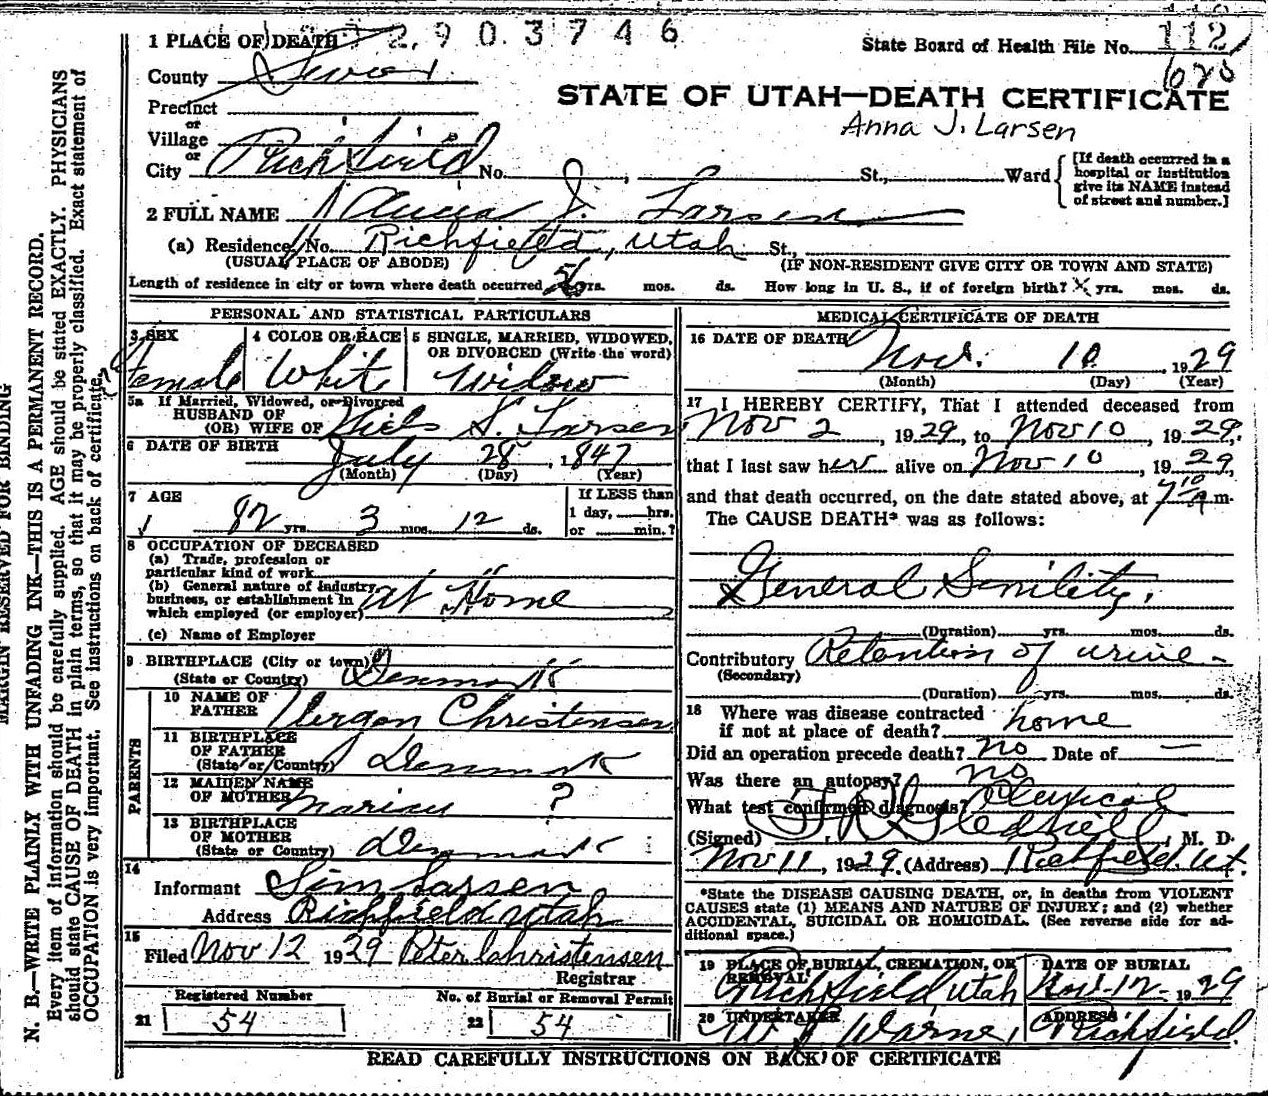 2903746
1 PLACE OF DEATH
State Board of Health File No. 112
620
County Sevier
STATE OF UTAH—DEATH CERTIFICATE
Anna J. Larsen
Precinct
or
Village
or
City Richfield No. , St., Ward
[If death occurred in a
hospital or institution
give its NAME instead
of street and number.]
2 FULL NAME Anna J. Larsen
(a) Residence, No. Richfield, Utah St.,
(USUAL PLACE OF ABODE) (IF NON-RESIDENT GIVE CITY OR TOWN AND STATE)
Length of residence in city or town where death occurred yrs. mos. ds. How long in U. S., if of foreign birth? x yrs. mos. ds.
PERSONAL AND STATISTICAL PARTICULARS
3 SEX
Female
4 COLOR OR RACE
White
5 SINGLE, MARRIED, WIDOWED,
OR DIVORCED (Write the word)
Widow
5a If Married, Widowed, or Divorced
HUSBAND OF
(OR) WIFE OF Niels S. Larsen
6 DATE OF BIRTH
July 28, 1847
(Month) (Day) (Year)
7 AGE
82 yrs. 3 mos. 12 ds.
If LESS than
1 day, hrs.
or min.?
8 OCCUPATION OF DECEASED
(a) Trade, profession or
particular kind of work
(b) General nature of industry,
business, or establishment in
which employed (or employer) at Home
(c) Name of Employer
9 BIRTHPLACE (City or town)
(State or Country) Denmark
PARENTS
10 NAME OF
FATHER Christensen
11 BIRTHPLACE
OF FATHER
(State or Country) Denmark
12 MAIDEN NAME
OF MOTHER ?
13 BIRTHPLACE
OF MOTHER
(State or Country) Denmark
14
Informant Larsen
Address Richfield Utah
15
Filed Nov 12 1929 Peter Christensen
Registrar
Registered Number
21 54
No. of Burial or Removal Permit
22 54
MEDICAL CERTIFICATE OF DEATH
16 DATE OF DEATH
Nov. 10, 1929
(Month) (Day) (Year)
17 I HEREBY CERTIFY, That I attended deceased from
Nov 2, 1929, to Nov 10, 1929,
that I last saw her alive on Nov 10, 1929,
and that death occurred, on the date stated above, at 7 10 A m.
The CAUSE DEATH* was as follows:
General Senility.
(Duration) yrs. mos. ds.
Contributory Retention of urine
(Secondary)
(Duration) yrs. mos. ds.
18 Where was disease contracted
if not at place of death? home
Did an operation precede death? no Date of —
Was there an autopsy? no
What test confirmed diagnosis?
(Signed) , M. D.
Nov 11, 1929. (Address) Richfield. Ut.
*State the DISEASE CAUSING DEATH, or, in deaths from VIOLENT
CAUSES state (1) MEANS AND NATURE OF INJURY; and (2) whether
ACCIDENTAL, SUICIDAL OR HOMICIDAL. (See reverse side for ad-
ditional space.)
19 PLACE OF BURIAL, CREMATION, OR
REMOVAL
Richfield Utah
DATE OF BURIAL
Nov-12-1929
20 UNDERTAKER
Warne,
ADDRESS
Richfield.
READ CAREFULLY INSTRUCTIONS ON BACK OF CERTIFICATE
MARGIN RESERVED FOR BINDING
N. B.—WRITE PLAINLY WITH UNFADING INK—THIS IS A PERMANENT RECORD.
Every item of information should be carefully supplied. AGE should be stated EXACTLY. PHYSICIANS
should state CAUSE OF DEATH in plain terms, so that it may be properly classified. Exact statement of
OCCUPATION is very important. See instructions on back of certificate.